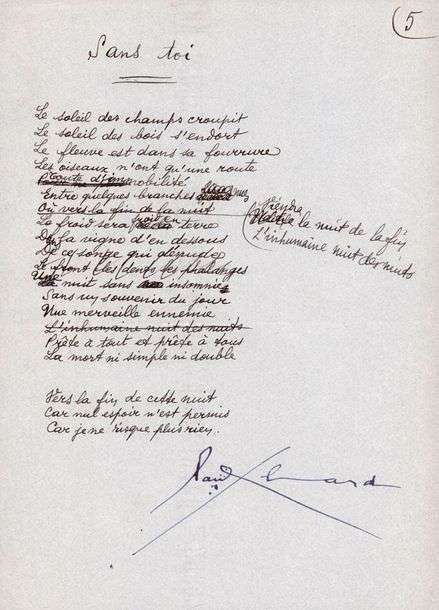 5
Sans toi
Le soleil des champs croupit
Le soleil des bois s'endort
Le fleuve est dans sa fourrure
Les oiseaux n'ont qu'une route
Toute d'immobilité
Entre quelques branches nues
Où vers la fin de la nuit
Viendra la nuit de la fin
L'inhumaine nuit des nuits
Le froid sera froid en terre
La vigne d'en dessous
De ce songe qui dénude
Le front les dents les phalanges
Une nuit sans insomnie
Sans un souvenir du jour
Une merveille ennemie
L'inhumaine nuit des nuits
Prête à tout et prête à tous
La mort ni simple ni double
Vers la fin de cette nuit
Car nul espoir n'est permis
Car je ne risque plus rien.
Paul Eluard